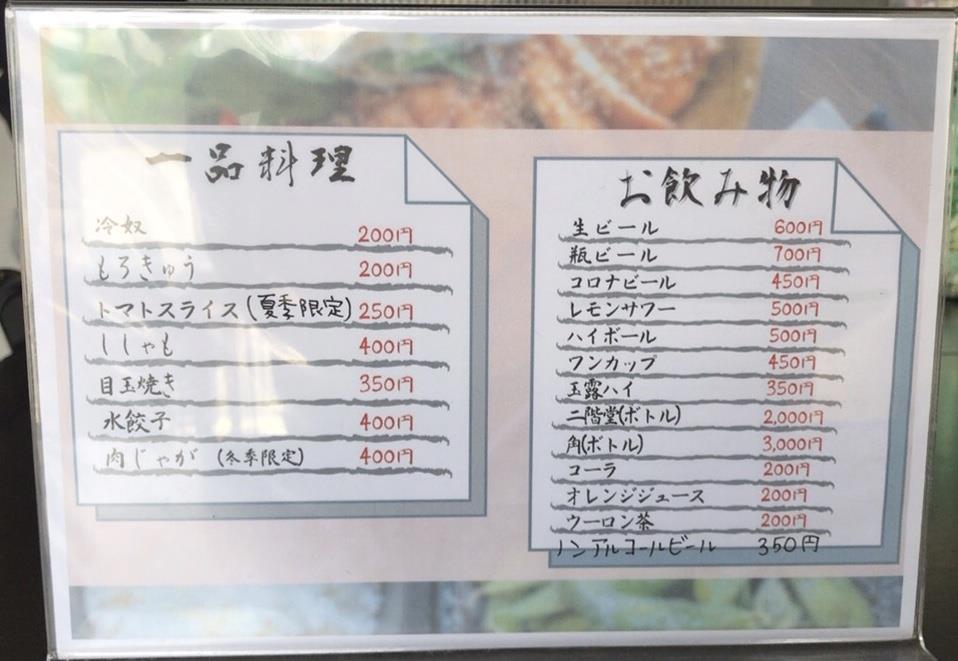 一品料理
冷奴 200円
もろきゅう 200円
トマトスライス(夏季限定) 250円
ししゃも 400円
目玉焼き 350円
水餃子 400円
肉じゃが (冬季限定) 400円
お飲み物
生ビール 600円
瓶ビール 700円
コロナビール 450円
レモンサワー 500円
ハイボール 500円
ワンカップ 450円
玉露ハイ 350円
二階堂(ボトル) 2,000円
角(ボトル) 3,000円
コーラ 200円
オレンジジュース 200円
ウーロン茶 200円
ノンアルコールビール 350円